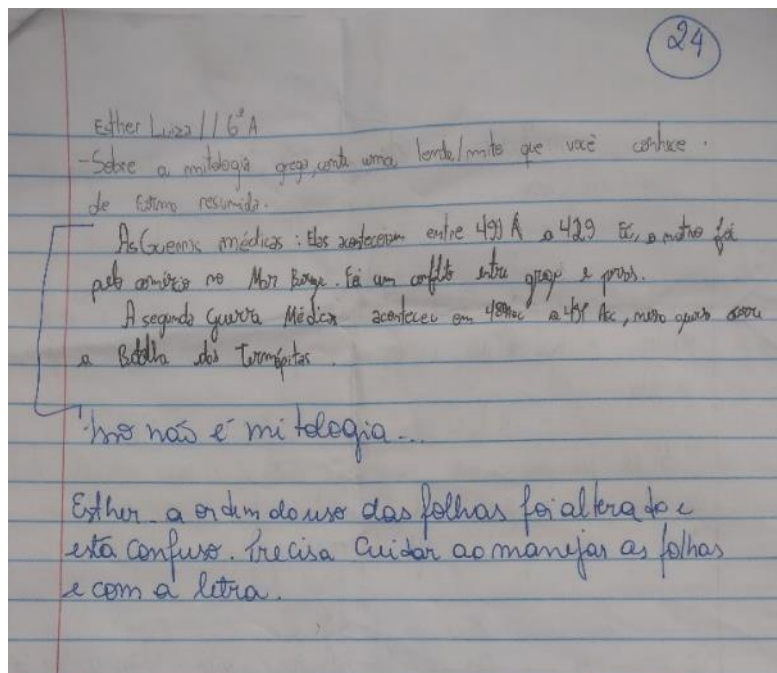 24
Esther Luiza // 6ª A
- Sobre a mitologia grega, conte uma lenda/mito que você conhece.
de forma resumida.
As Guerras médicas: Elas aconteceram entre 490 A a 429 Ec, o motivo foi
pelo comércio no Mar. Foi um conflito entre grego e persas.
A segunda Guerra Médica aconteceu em a Ac, nessa guerra
a Batalha das Termópilas.
Isso não é mitologia...
Esther a ordem do uso das folhas foi alterado e
está confuso. Precisa cuidar ao manejar as folhas
e com a letra.